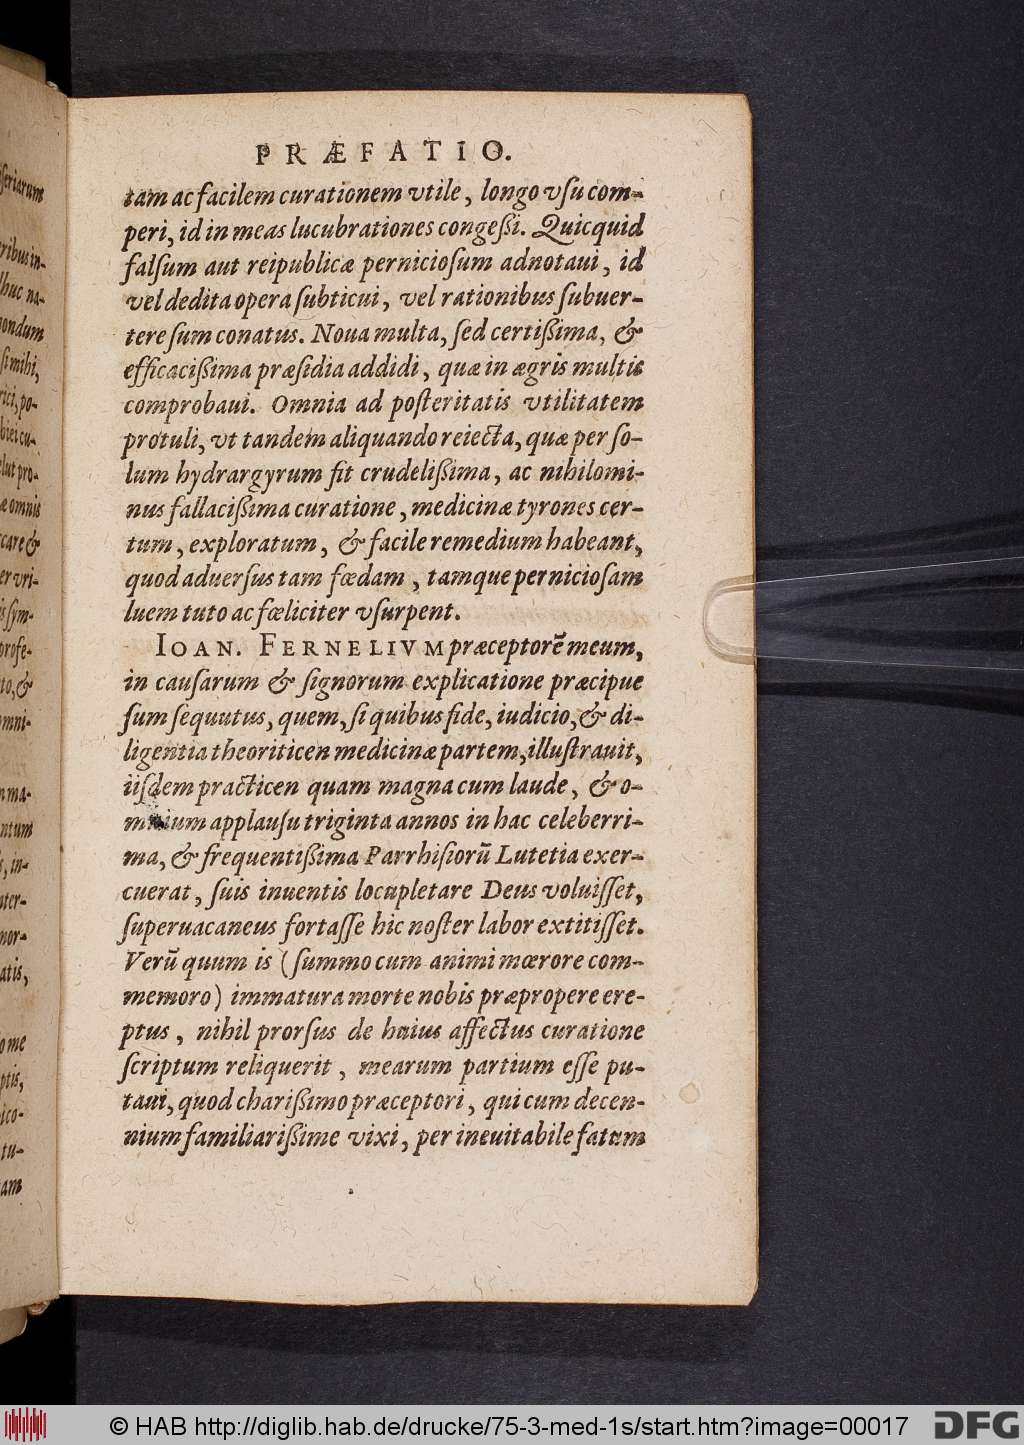 PRÆFATIO.
tam ac facilem curationem vtile, longo vsu com-
peri, id in meas lucubrationes congeßi. Quicquid
falsum aut reipublicæ perniciosum adnotaui, id
vel dedita opera subticui, vel rationibus subuer-
tere sum conatus. Noua multa, sed certißima, &
efficacißima præsidia addidi, quæ in ægris multis
comprobaui. Omnia ad posteritatis vtilitatem
protuli, vt tandem aliquando reiecta, quæ per so-
lum hydrargyrum fit crudelißima, ac nihilomi-
nus fallacißima curatione, medicinæ tyrones cer-
tum, exploratum, & facile remedium habeant,
quod aduersus tam fœdam, tamque perniciosam
luem tuto ac fœliciter vsurpent.
IOAN. FERNELIVM præceptorẽ meum,
in causarum & signorum explicatione præcipue
sum sequutus, quem, si quibus fide, iudicio, & di-
ligentia theoriticen medicinæ partem, illustrauit,
iisdem practicen quam magna cum laude, & o-
mnium applausu triginta annos in hac celeberri-
ma, & frequentißima Parrhisiorũ Lutetia exer-
cuerat, suis inuentis locupletare Deus voluisset,
superuacaneus fortasse hic noster labor extitisset.
Verũ quum is (summo cum animi mœrore com-
memoro) immatura morte nobis præpropere ere-
ptus, nihil prorsus de huius affectus curatione
scriptum reliquerit, mearum partium esse pu-
taui, quod charißimo præceptori, qui cum decen-
nium familiarißime vixi, per ineuitabile fatum
seriarum
ribus in-
huc na-
ondum
si mihi,
rici, po-
biei cu-
lut pro-
æ omnis
care &
er vri-
is sym-
profe-
to, &
omni-
mma-
ntum
s, in-
ter-
mor-
atis,
ome
ptis,
ico-
tu-
tam
© HAB http://diglib.hab.de/drucke/75-3-med-1s/start.htm?image=00017
DFG